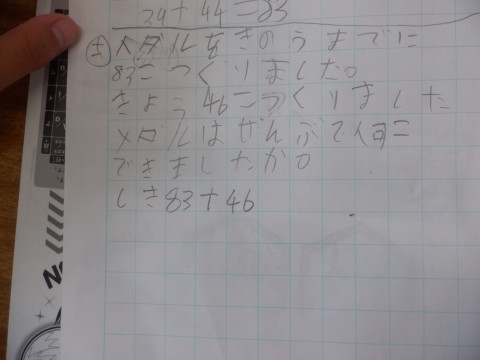 39+44=83
メダルをきのうまでに
83こつくりました。
きょう46こつくりました
メダルはぜんぶで何こ
できましたか。
しき83+46